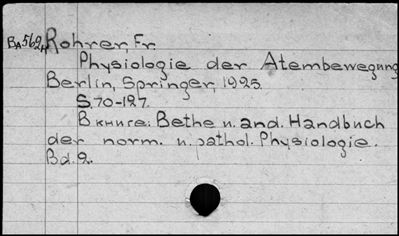 BA562н Rohrer, Fr.
Physiologie der Atembewegung
Berlin, Springer, 1925.
S. 70-127.
В книге: Bethe u. and. Handbuch
der norm. u. pathol. Physiologie.
Bd. 2.